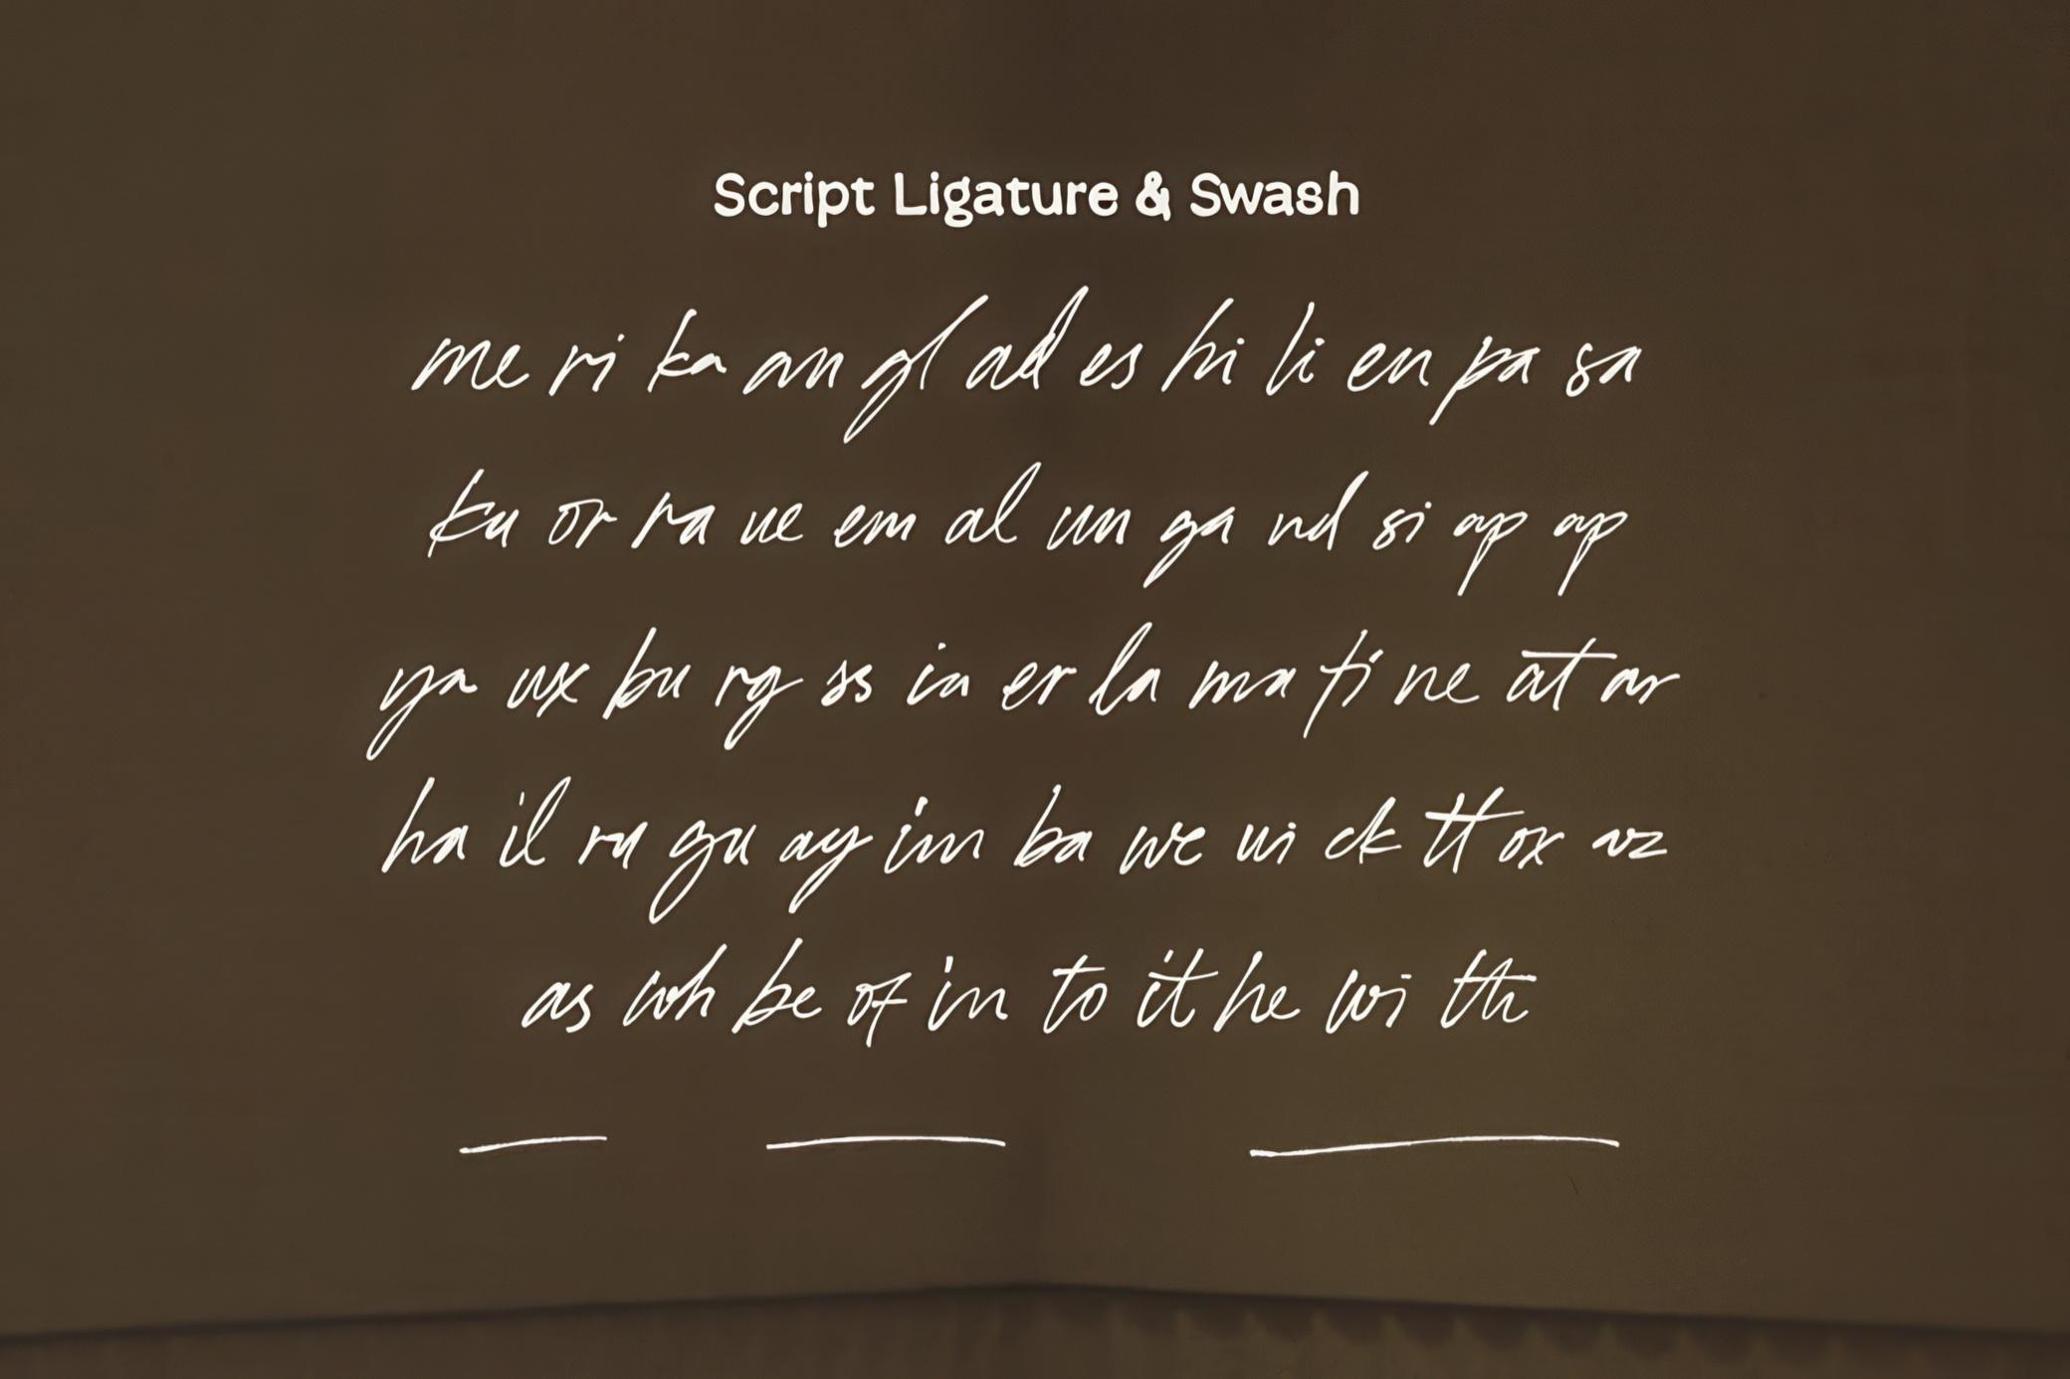 Script Ligature & Swash
me ri ka an gl ad es hi li en pa sa
ku or ra ue em al un ga nd si ap op
ya ux bu rg ss ia er la ma ti ne at ar
ha il ru gu ay im ba we ui ck tt ox az
as wh be of in to it he wi th